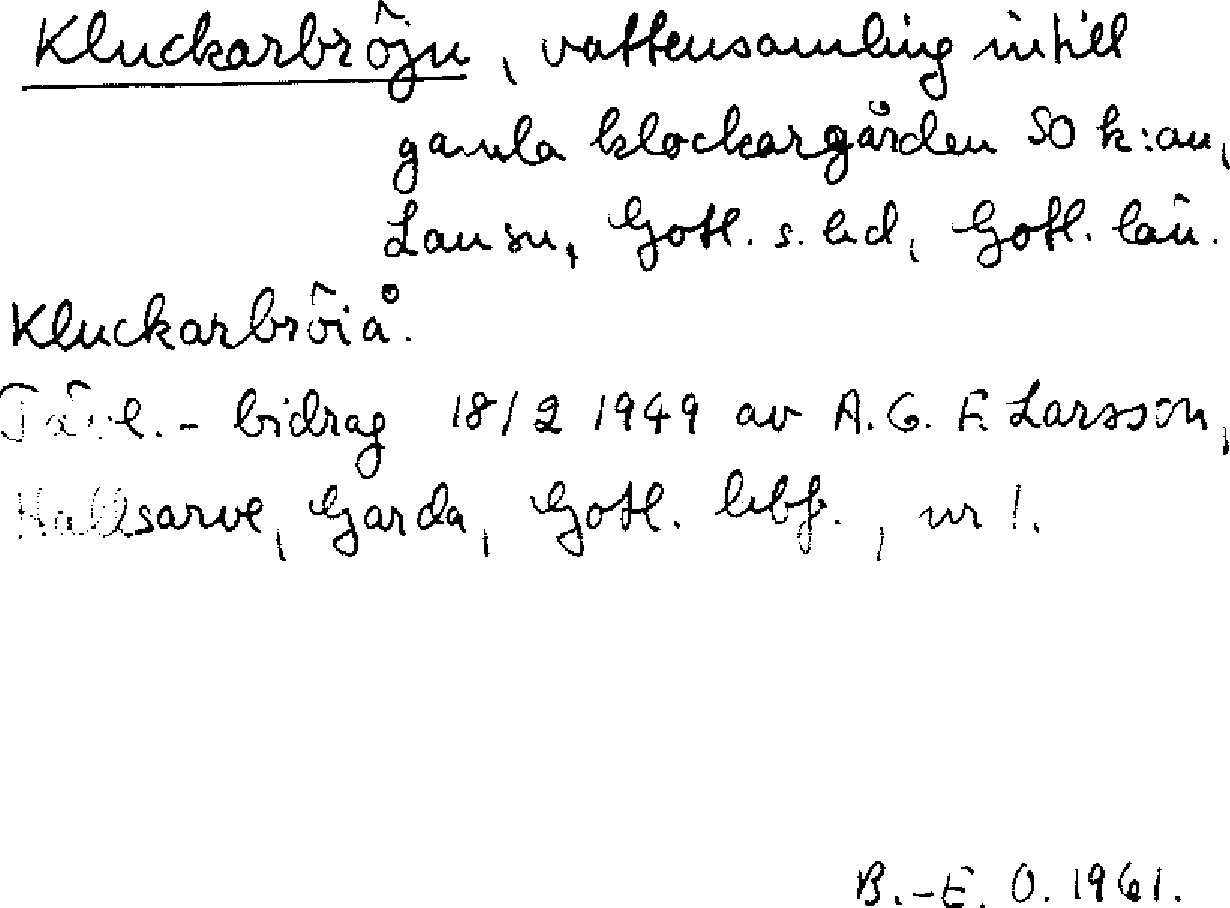 Kluckarbröju, vattensamling intill
gamla klockargården SO k:an,
Lau sn, Gotl. s. hd, Gotl. län.
Kluckarbröiå.
Tävl.- bidrag 18/2 1949 av A. G. F. Larsson,
Hallsarve, Garda, Gotl. hbf., nr 1.
B.-E. O. 1961.